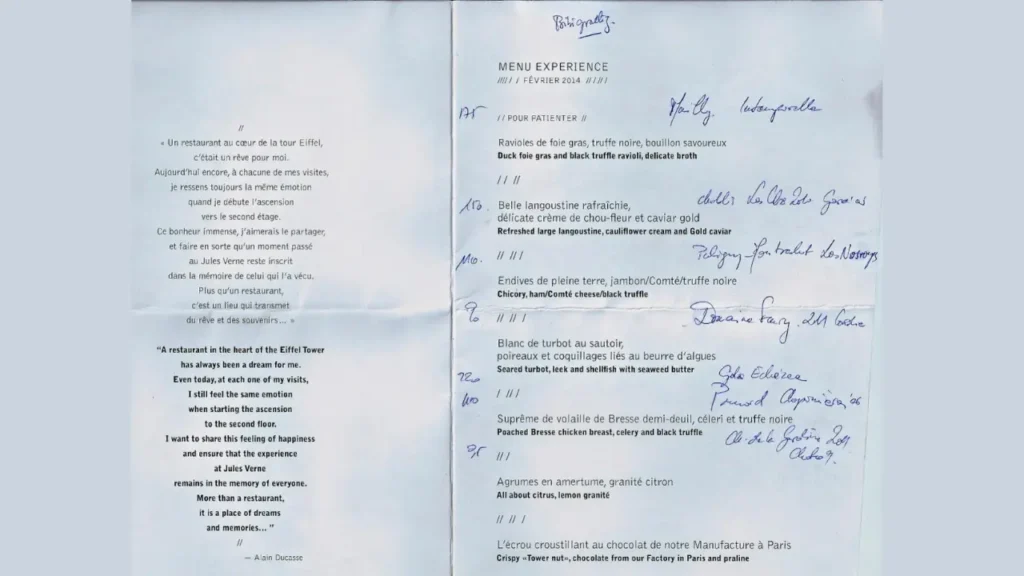 //
« Un restaurant au cœur de la tour Eiffel,
c'était un rêve pour moi.
Aujourd'hui encore, à chacune de mes visites,
je ressens toujours la même émotion
quand je débute l'ascension
vers le second étage.
Ce bonheur immense, j'aimerais le partager,
et faire en sorte qu'un moment passé
au Jules Verne reste inscrit
dans la mémoire de celui qui l'a vécu.
Plus qu'un restaurant,
c'est un lieu qui transmet
du rêve et des souvenirs... »
"A restaurant in the heart of the Eiffel Tower
has always been a dream for me.
Even today, at each one of my visits,
I still feel the same emotion
when starting the ascension
to the second floor.
I want to share this feeling of happiness
and ensure that the experience
at Jules Verne
remains in the memory of everyone.
More than a restaurant,
it is a place of dreams
and memories... "
//
— Alain Ducasse
MENU EXPERIENCE
///// / FÉVRIER 2014 // / ///
Mailly
// POUR PATIENTER //
Ravioles de foie gras, truffe noire, bouillon savoureux
Duck foie gras and black truffle ravioli, delicate broth
/ / / //
150. Belle langoustine rafraîchie, Les
délicate crème de chou-fleur et caviar gold
Refreshed large langoustine, cauliflower cream and Gold caviar
// // /
Puligny-Montrachet Les
Endives de pleine terre, jambon/Comté/truffe noire
Chicory, ham/Comté cheese/black truffle
// // /
Domaine 2011
Blanc de turbot au sautoir,
poireaux et coquillages liés au beurre d'algues
Seared turbot, leek and shellfish with seaweed butter
/ // /
Suprême de volaille de Bresse demi-deuil, céleri et truffe noire
Poached Bresse chicken breast, celery and black truffle
2011
// /
Agrumes en amertume, granité citron
All about citrus, lemon granité
// // /
L'écrou croustillant au chocolat de notre Manufacture à Paris
Crispy «Tower nut», chocolate from our Factory in Paris and praline